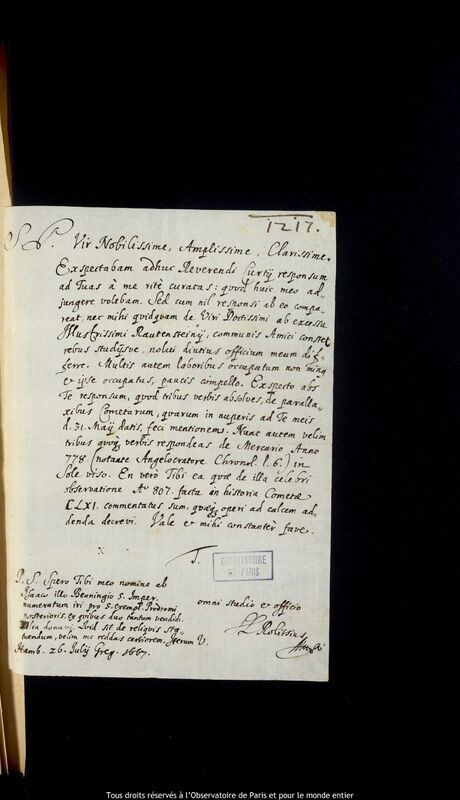 1217.
S. P. Vir Nobilissime, Amplissime, Clarissime.
Exspectabam adhuc Reverendi Curtij responsum
ad Tuas à me ritè curatas: quod huic meo ad-
jungere volebam. Sed cum nil responsi ab eo compa-
reat, nec mihi quidquam de Viri Doctissimi ab excessu
Illustrissimi Rautensteinij, communis Amici constet
rebus studijsve, nolui diutius officium meum dif-
ferre. Multis autem laboribus occupatum non minus
et ipse occupatus, paucis compello. Exspecto abs
Te responsum, quod tribus verbis absolves, de paralla-
xibus Cometarum, quarum in nuperis ad Te meis
d. 31. Maij datis, feci mentionem. Nunc autem velim
tribus quoq verbis respondeas de Mercurio Anno
778. (notante Angelocratore Chronol. l. 6.) in
Sole viso. En verò Tibi ea quae de illa celebri
observatione Aº 807. facta in historia Cometae
CLXI. commentatus sum, quaeq operi ad calcem ad-
denda decrevi. Vale et mihi constanter fave.
T.
OBSERVATOIRE
DE PARIS
omni studio et officio
P. S. Spero Tibi meo nomine ab
Isaaco illo Beuningio 5. Imper.
numeratum iri pro 5. exempl. Prodromi
posterioris, ex quibus duo tantum vendidi.
alia donavi. Quid sit de reliquis sta-
tuendum, velim me reddas certiorem. Iterum V.
Hamb. 26. Julij Greg. 1667.
Tous droits réservés à l'Observatoire de Paris et pour le monde entier